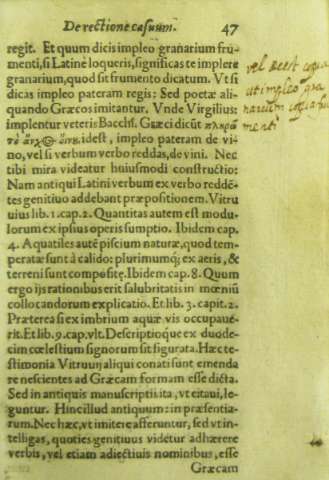 De rectione casuum. 47
regit. Et quum dicis impleo granarium fru-
menti, si Latinè loqueris, significas te implere
granarium, quod sit frumento dicatum. Vt si
dicas impleo pateram regis: Sed poetæ ali-
quando Græcos imitantur. Vnde Virgilius:
implentur veteris Bacchi. Græci dicũt πληρῶ
idest, impleo pateram de vi-
no, vel si verbum verbo reddas, de vini. Nec
tibi mira videatur huiusmodi constructio:
Nam antiqui Latini verbum ex verbo reddẽ-
tes genitiuo addebant præpositionem. Vitru
uius lib. 1. cap. 2. Quantitas autem est modu-
lorum ex ipsius operis sumptio. Ibidem cap.
4. Aquatiles autẽ piscium naturæ, quod tem-
peratæ sunt à calido: plurimumq; ex aeris, &
terreni sunt compositę. Ibidem cap. 8. Quum
ergo ijs rationibus erit salubritatis in mœniũ
collocandorum explicatio. Et lib. 3. capit. 2.
Præterea si ex imbrium aquæ vis occupaue-
rit. Et lib. 9. cap. vlt. Descriptioque ex duode-
cim cœlestium signorum sit figurata. Hæc te-
stimonia Vitruuij aliqui conati sunt emenda
re nescientes ad Græcam formam esse dicta.
Sed in antiquis manuscriptis ita, vt citaui, le-
guntur. Hinc illud antiquum: in præsentia-
rum. Nec hæc, vt imitere afferuntur, sed vt in-
telligas, quoties genitiuus videtur adhærere
verbis, vel etiam adiectiuis nominibus, esse
Græcam
vel deest copia
ut impleo gra
narium copia fru
menti